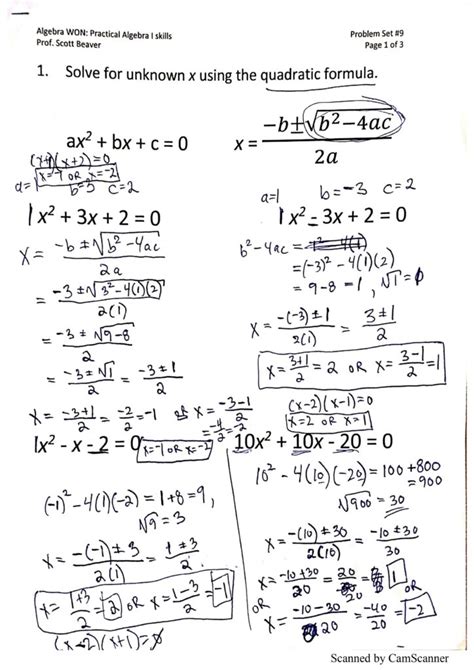 Algebra WON: Practical Algebra I skills
Prof. Scott Beaver
Problem Set #9
Page 1 of 3
1. Solve for unknown x using the quadratic formula.
ax² + bx + c = 0
x = (-b±√(b²-4ac))/2a
(x+1)(x+2)=0
x=-1 OR x=-2
a=1 b=3 c=2
1x² + 3x + 2 = 0
x = (-b ± √(b²-4ac))/2a
= (-3 ± √(3²-4(1)(2)))/2(1)
= (-3 ± √(9-8))/2
= (-3 ± √1)/2 = (-3 ± 1)/2
x = (-3+1)/2 = -2/2 = -1 or x = (-3-1)/2
= -4/2 = -2
x=-1 OR x=-2
a=1 b=-3 c=2
1x² - 3x + 2 = 0
b²-4ac =
=(-3)²-4(1)(2)
= 9-8 = 1, √1 =
x = (-(-3) ± 1)/2(1) = (3±1)/2
x = (3+1)/2 = 2 OR x = (3-1)/2 = 1
(x-2)(x-1)=0
x=2 OR x=1
1x² - x - 2 = 0
(-1)²-4(1)(-2) = 1+8 = 9,
√9 = 3
x = (-(-1) ± 3)/2(1) = (1±3)/2
x = (1+3)/2 = 2 OR x = (1-3)/2 = -1
(x-2)(x+1)=0
10x² + 10x - 20 = 0
10²-4(10)(-20) = 100+800
= 900
√900 = 30
x = (-(10) ± 30)/2(10) = (-10±30)/
x = (-10+30)/20 = 20/20 = 1
OR
x = (-10-30)/20 = -40/20 = -2
Scanned by CamScanner